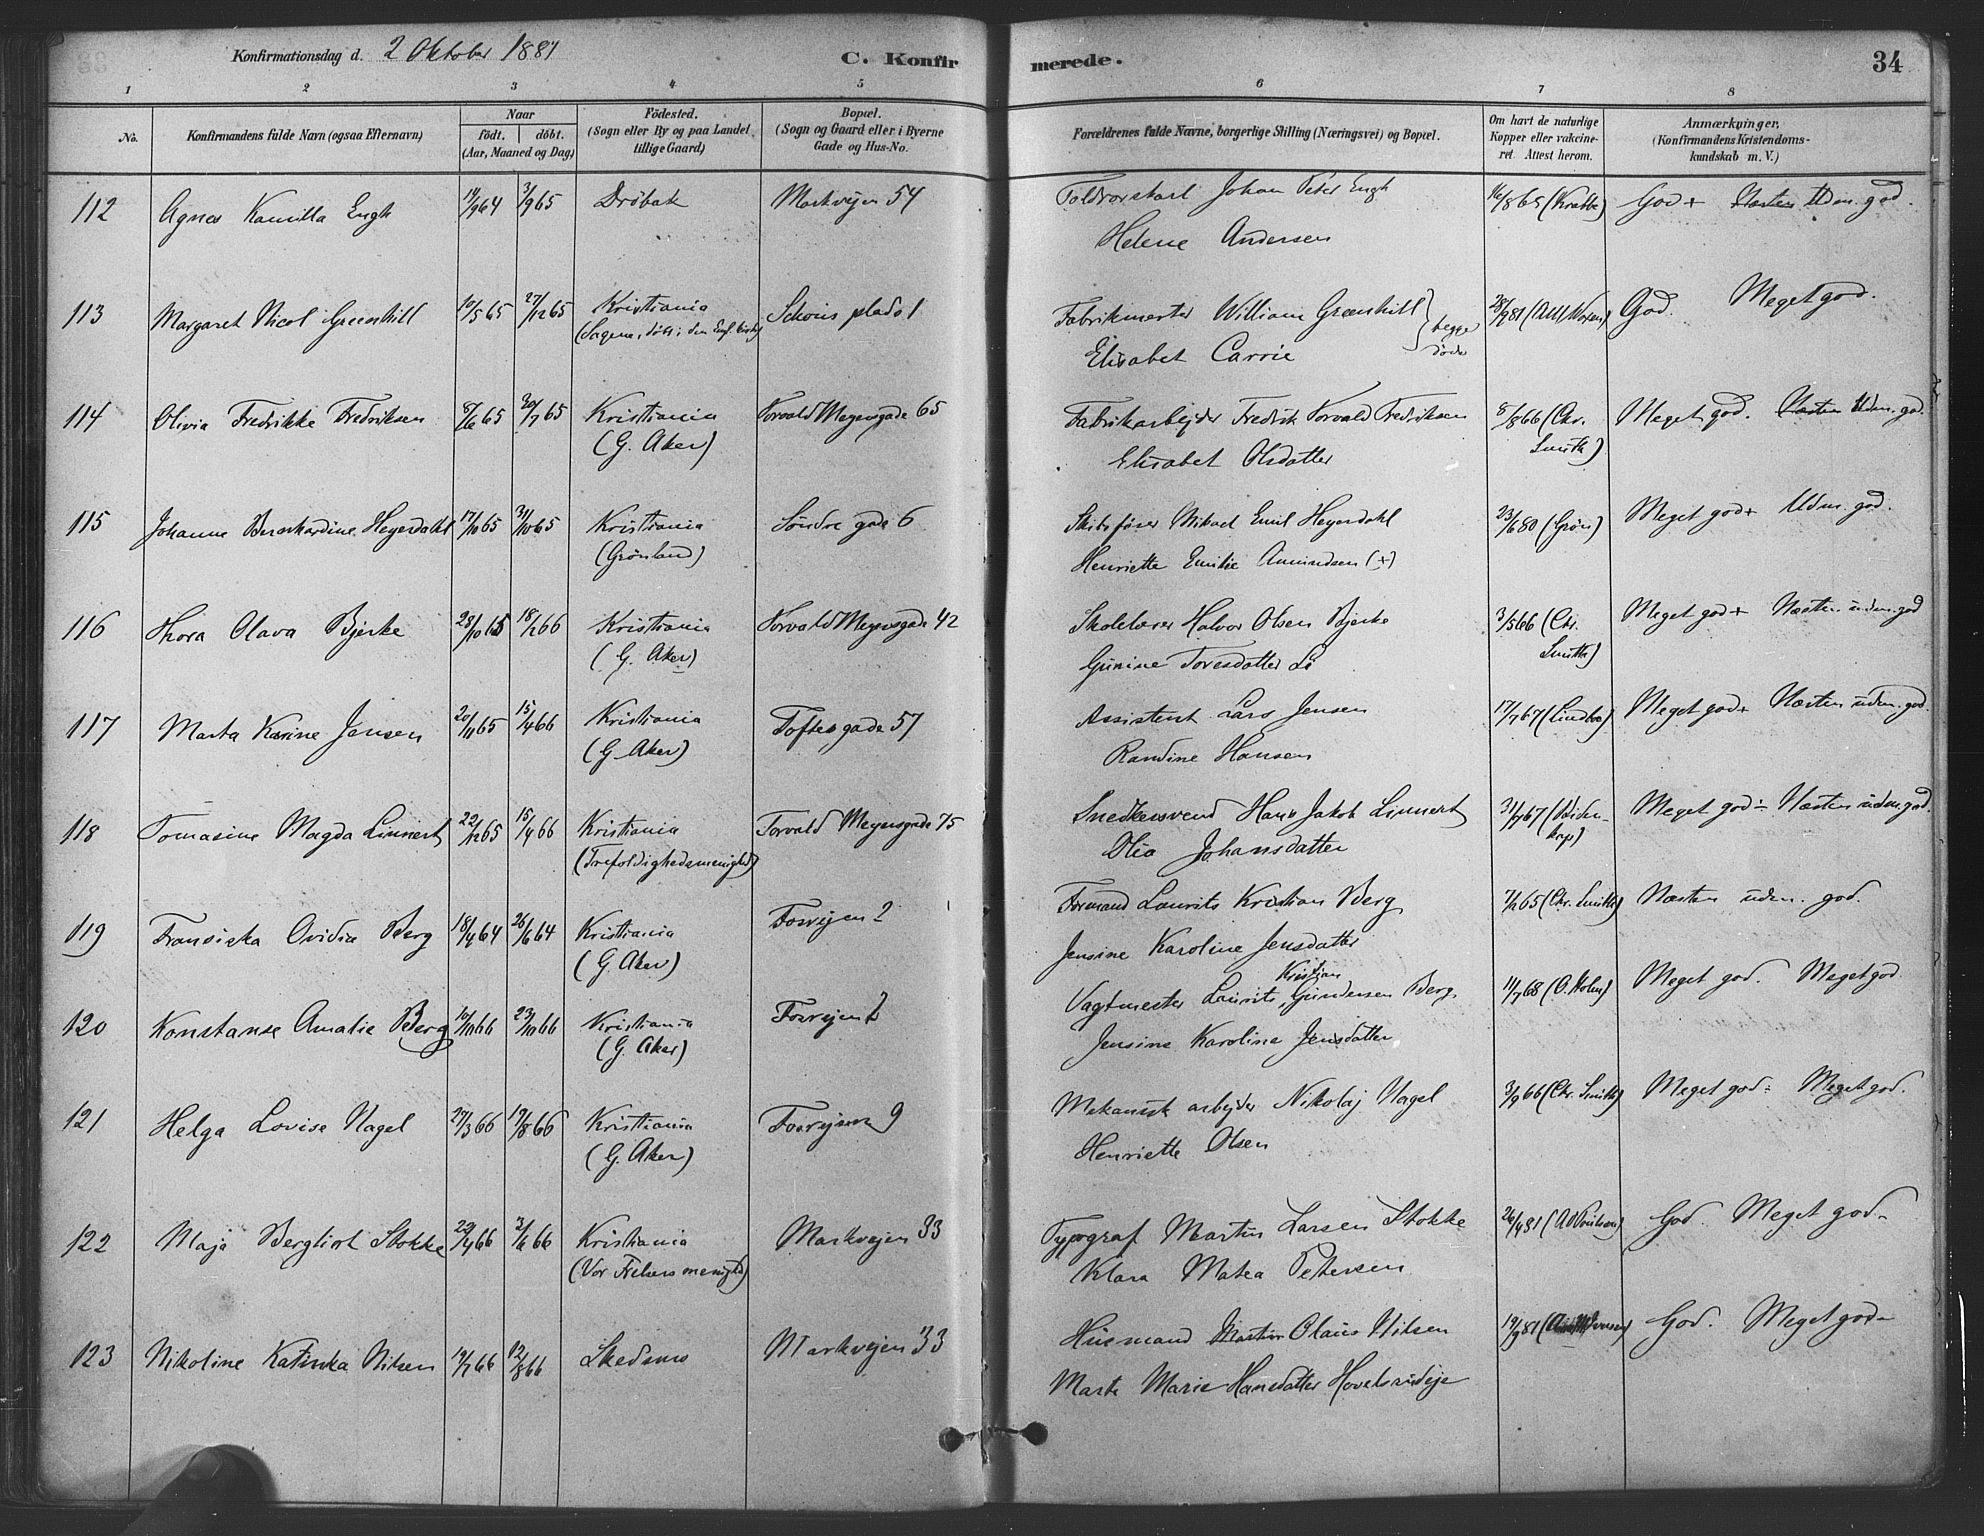 Konfirmationsdag d. 2 Oktober 1881
C. Konfirmerede.
34
1 2 3 4 5 6 7 8
No.
Konfirmandens fulde Navn (ogsaa Efternavn)
Naar
födt. döbt.
(Aar, Maaned og Dag)
Födested.
(Sogn eller By og paa Landet
tillige Gaard)
Bopæl.
(Sogn og Gaard eller i Byerne
Gade og Hus-No.
Forældrenes fulde Navne, borgerlige Stilling (Næringsvei) og Bopæl.
Om havt de naturlige
Kopper eller vakcine-
ret Attest herom.
Anmærkninger,
(Konfirmandens Kristendoms-
kundskab m. V.)
112 Agnes Kamilla Engh 14/9 64 3/9 65 Dröbak Markvejen 54 Toldrorskarl Johan Peter Engh 16/8 65 (Krabbe) God + Næsten Udm. god.
Helene Andersen
113 Margaret Nicol Greenhill 10/5 65 27/12 65 Kristiania Schous plads 1 Fabrikmester William Greenhill 28/9 81 God. Meget god.
(Sagene, döbt i den Engl. kirke) begge
Elisabet Carrie döde
114 Olivia Fredrikke Fredriksen 8/6 65 30/7 65 Kristiania Torvald Meyersgade 65 Fabrikarbejder Fredrik Torvald Fredriksen 8/8 66 (Chr. Meget god. Næsten Udm. god.
(G. Aker) Elisabet Olsdatter Smith)
115 Johanne Bernhardine Heyerdahl 17/10 65 31/10 65 Kristiania Söndre gade 6 Skibsförer Mikael Emil Heyerdahl 23/6 80 (Grön) Meget god + Udm. god.
(Grönland) Henriette Emilie Amundsen (+)
116 Thora Olava Bjerke 28/10 65 18/2 66 Kristiania Torvald Meyersgade 42 Skolelærer Halvor Olsen Bjerke 3/5 66 (Chr. Meget god + Næsten udm. god
(G. Aker) Gunine Toresdatter Li Smith)
117 Marta Karine Jensen 20/11 65 15/4 66 Kristiania Toftesgade 57 Assistent Lars Jensen 17/7 67 (Lindbo) Meget god + Næsten udm. god.
(G. Aker) Randine Hansen
118 Tomasine Magda Linnert 22/12 65 15/4 66 Kristiania Torvald Meyersgade 75 Snedkersvend Hans Jakob Linnert 31/7 67 (Biden- Meget god ÷ Næsten udm. god.
(Trefoldighedsmenighed) Olia Johansdatter kap)
119 Fransiska Ovidia Berg 18/4 64 26/6 64 Kristiania Fosvejen 2 Formand Laurits Kristian Berg 7/2 65 (Chr. Smith) Næsten udm. god.
(G. Aker) Jensine Karoline Jensdatter
120 Konstanse Amalie Berg 10/10 66 23/10 66 Kristiania Fosvejen 2 Vagtmester Laurits Kristian Gundersen Berg. 11/7 68 (O. Holm) Meget god. Meget god.
(G. Aker) Jensine Karoline Jensdatter
121 Helga Lovise Nagel 27/3 66 19/8 66 Kristiania Fosvejen 9 Mekanisk arbejder Nikolaj Nagel 3/9 66 (Chr. Smith) Meget god ÷ Meget god.
(G. Aker) Henriette Olsen
122 Maja Bergliot Stokke 22/4 66 3/6 66 Kristiania Markvejen 33 Typograf Martin Larsen Stokke 26/4 81 God. Meget god ÷
(Vor Frelsers menighd) Klara Matea Pettersen
123 Nikoline Katinka Nilsen 14/7 66 12/8 66 Skedsmo Markvejen 33 Husmand Martin Olaus Nilsen 19/9 81 God. Meget god ÷
Marte Marie Hansdatter Hovelsrudeje